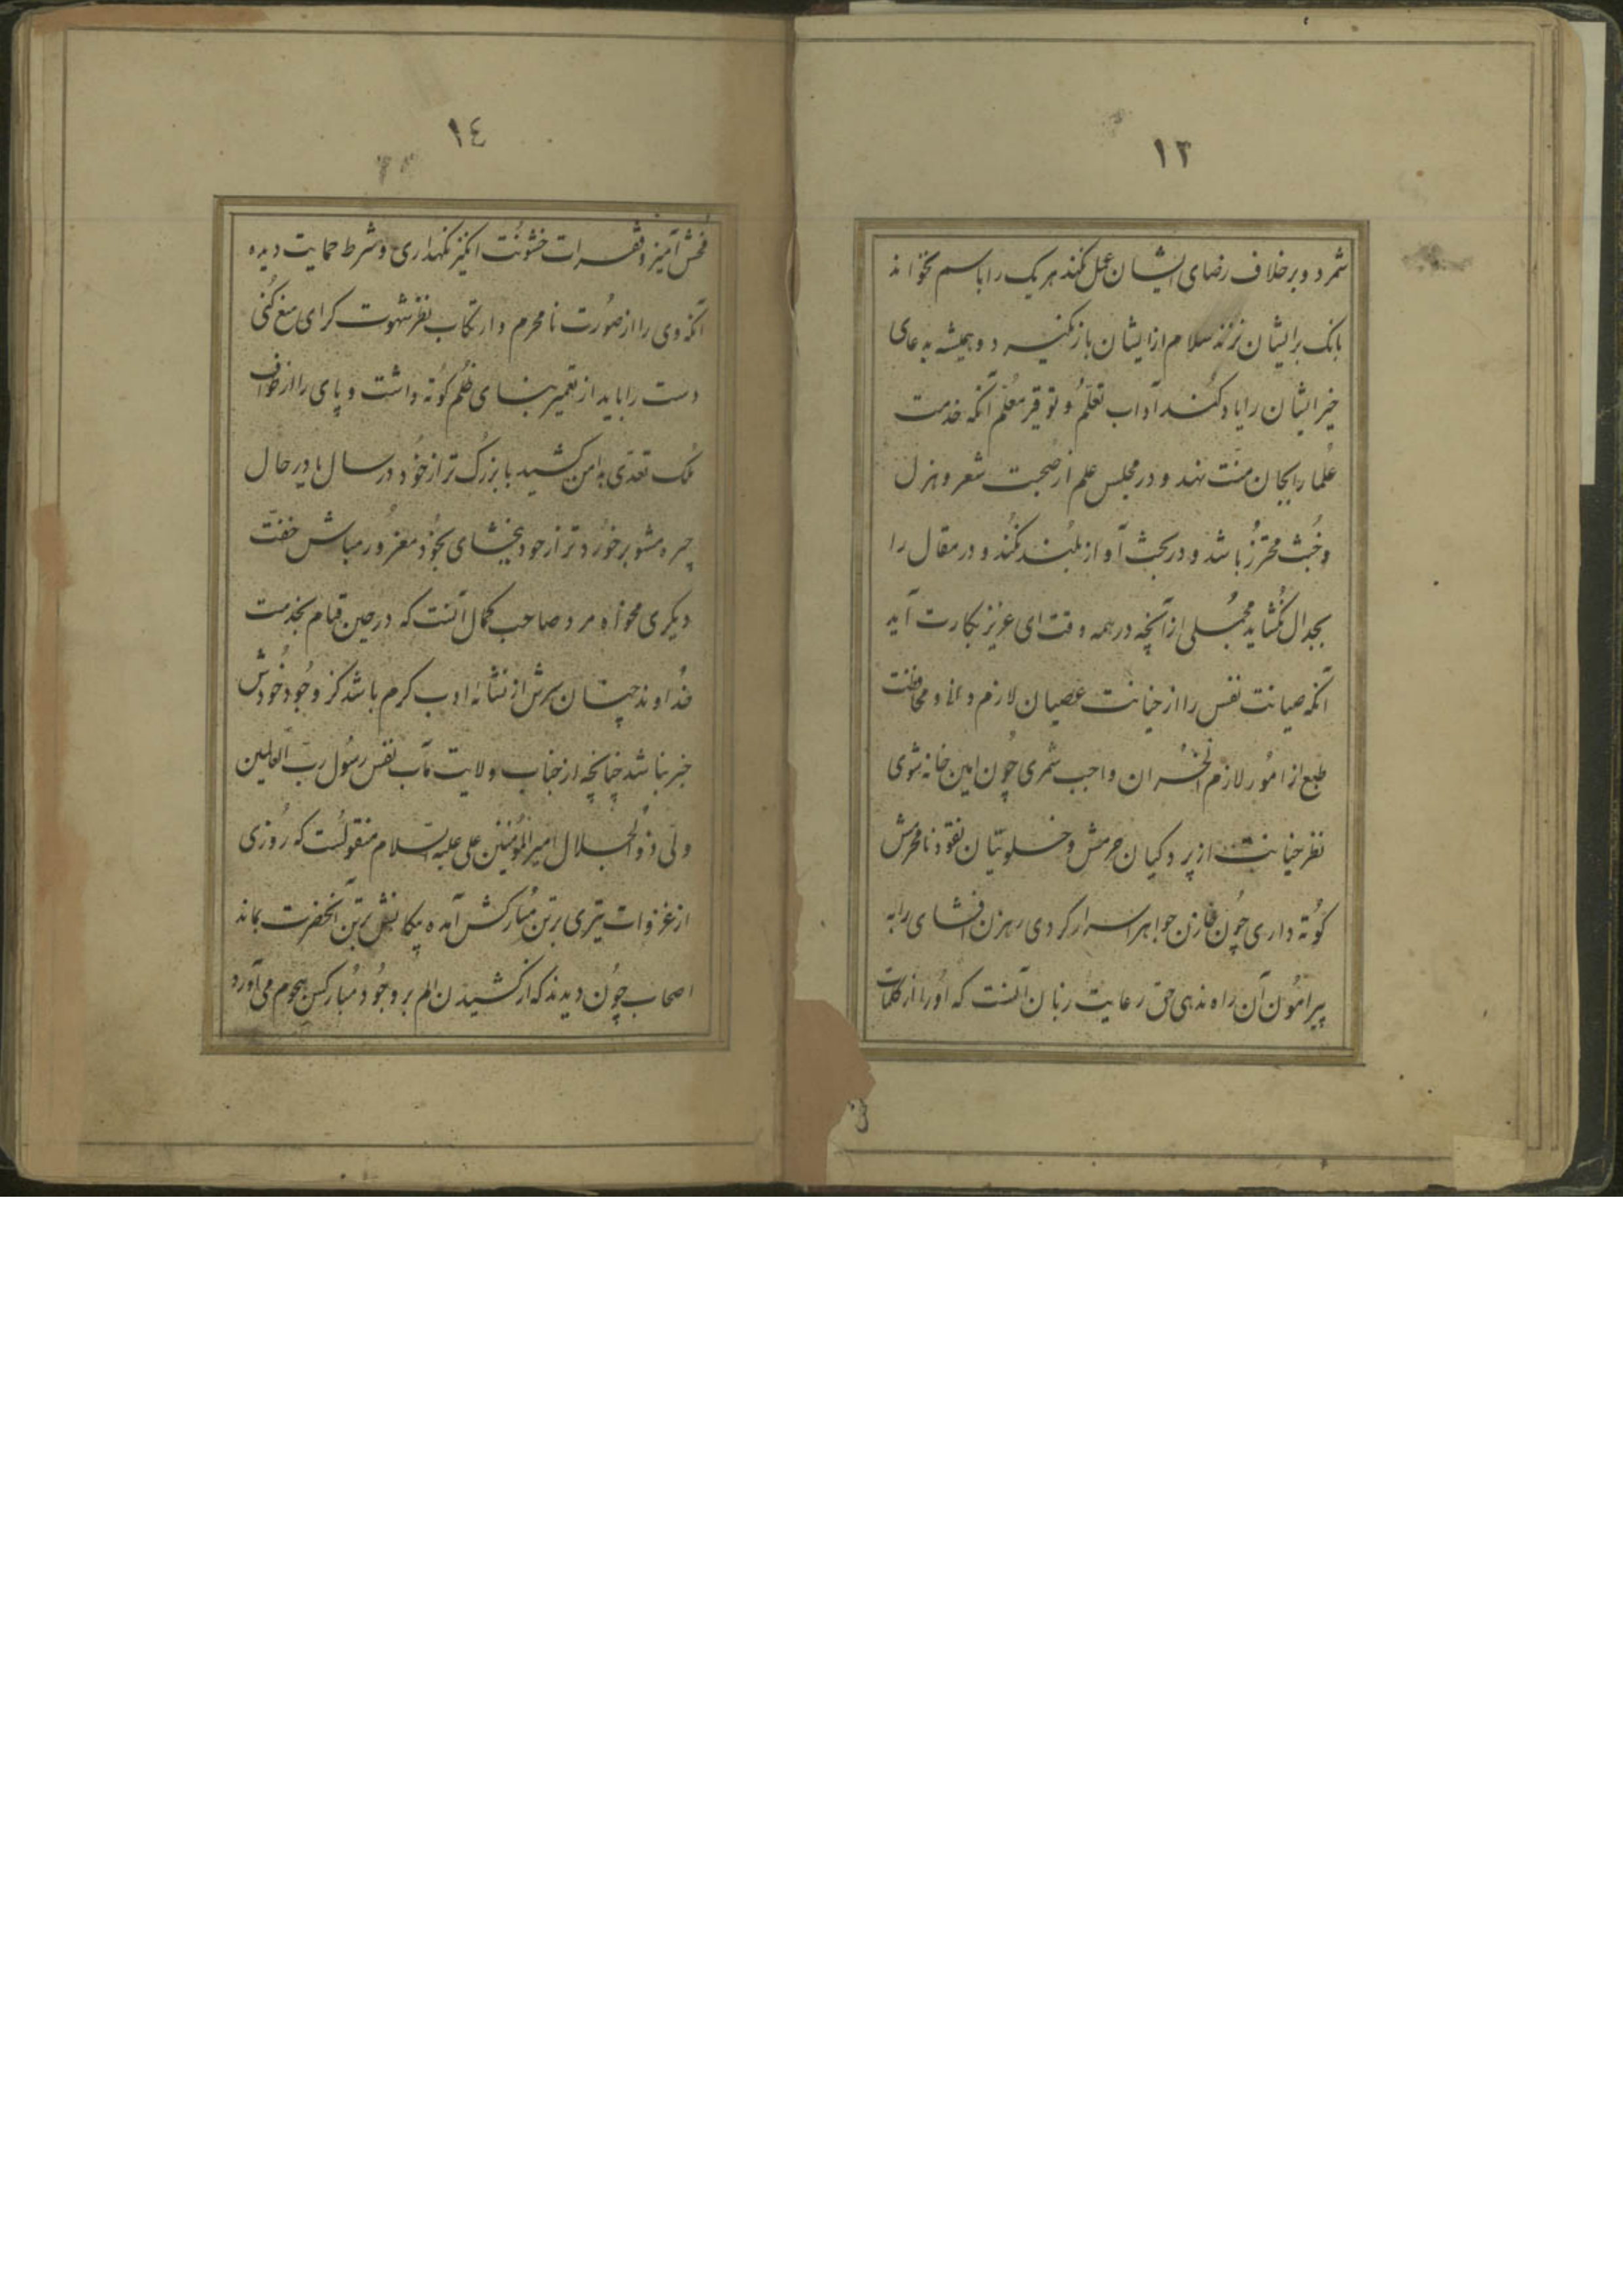 ١٣
شمرد و برخلاف رضای ایشان عمل نکند هر یک را باسم نخواند
بانک بر ایشان نزند سلام از ایشان باز نگیرد و همیشه بدعای
خیر ایشان را یاد کند آداب تعلّم و توقیر معلّم آنکه خدمت
علما را بجان منّت نهد و در مجلس علم از صحبت شعر و هزل
و خُبث محترز باشد و در بحث آواز بلند نکند و در مقال را
بجدال نکشاید مجملی از آنچه در همه وقت ای عزیز بکارت آید
آنکه صیانت نفس را از خیانت عصیان لازم دانی و محافظت
طبع از امور لازم الخسران واجب شمری چون امین خانه شوی
نظر خیانت از پردکیان حرمش و خلوتیان نقود نامحرمش
کوته داری چون خازن جواهر اسرار کردی رهزن افشای را به
پیرامون آن راه ندهی حق رعایت زنان آنست که او را از کلمات
١٤
فحش آمیز و فقرات خشونت انکیز نکهداری و شرط حمایت دیده
آنکه وی را از صورت نامحرم و ارتکاب نظر شهوت کرای منع کنی
دست را باید از تعمیر بنای ظلم کوته داشت و پای را از طواف
ملک تعدّی بدامن کشید با بزرک تر از خود در سال یا در حال
چیره مشو بر خورد تر از خود ببخشای بخود مغرور مباش خفّت
دیکری مخواه مرد صاحب کمال آنست که در حین قیام بخدمت
خداوند چنان سرش از نشأه ادب کرم باشد کز وجود خودش
خبر نباشد چنانچه از جناب ولایت مآب نفس رسول ربّ العالمین
ولی ذوالجلال امیر المؤمنین علی علیه السلام منقولست که روزی
از غزوات تیری بر تن مبارکش آمده پیکانش بر تن آنحضرت بماند
اصحاب چون دیدند که از کشیدن الم بر وجود مبارکش هجوم می آورد